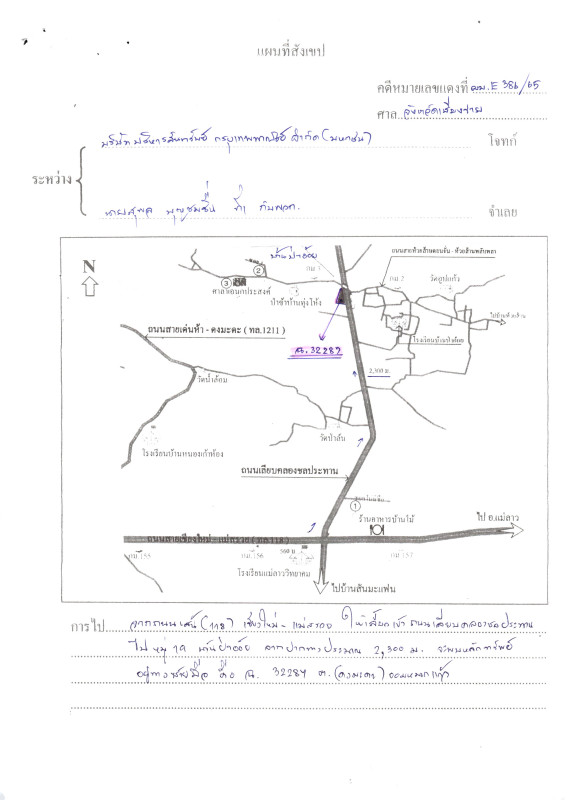 แผนที่สังเขป
คดีหมายเลขแดงที่ ผบ.E 386/65
ศาล จังหวัดเชียงราย
บริษัทบริหารสินทรัพย์ กรุงเทพพาณิชย์ จำกัด (มหาชน) โจทก์
ระหว่าง
นายสุพล บุญชุมชื่น กับพวก จำเลย
บ้านป่าอ้อย
ถนนสายห้วยส้านดอนจั่น - ห้วยส้านพลับพลา
N
กม. 1
กม. 2
ศาลาอเนกประสงค์
ป่าช้าบ้านทุ่งโห้ง
ไปบ้านห้วยส้าน
ถนนสายเด่นห้า - ดงมะดะ ( ทล.1211 )
โรงเรียนบ้านป่าอ้อย
ฉ. 32287
2,300 ม.
วัดน้ำล้อม
โรงเรียนบ้านหนองเก้าห้อง
วัดป่าส้น
ถนนเลียบคลองชลประทาน
ร้านอาหารบ้านโม้
ไป อ.แม่ลาว
ถนนสายเชียงใหม่ - แม่สรวย ( ทล.118 )
กม. 155
กม. 156
500 ม
กม. 157
โรงเรียนแม่ลาววิทยาคม
ไปบ้านสันมะแฟน
การไป จากถนนเส้น (118) เชียงใหม่ - แม่สรวย ให้เลี้ยวเข้า ถนนเลียบคลองชลประทาน
ไป หมู่ 19 บ้านป่าอ้อย จากปากทางประมาณ 2,300 ม. จะพบหลักทรัพย์
อยู่ทางซ้ายมือ คือ ฉ. 32287 ต. (ดงมะดะ)